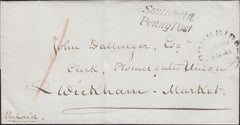 Southwold
Penny Post
John Dallenger, Esqre
Clerk, Plomesgate Union
Wickham-Market.
Prepaid.